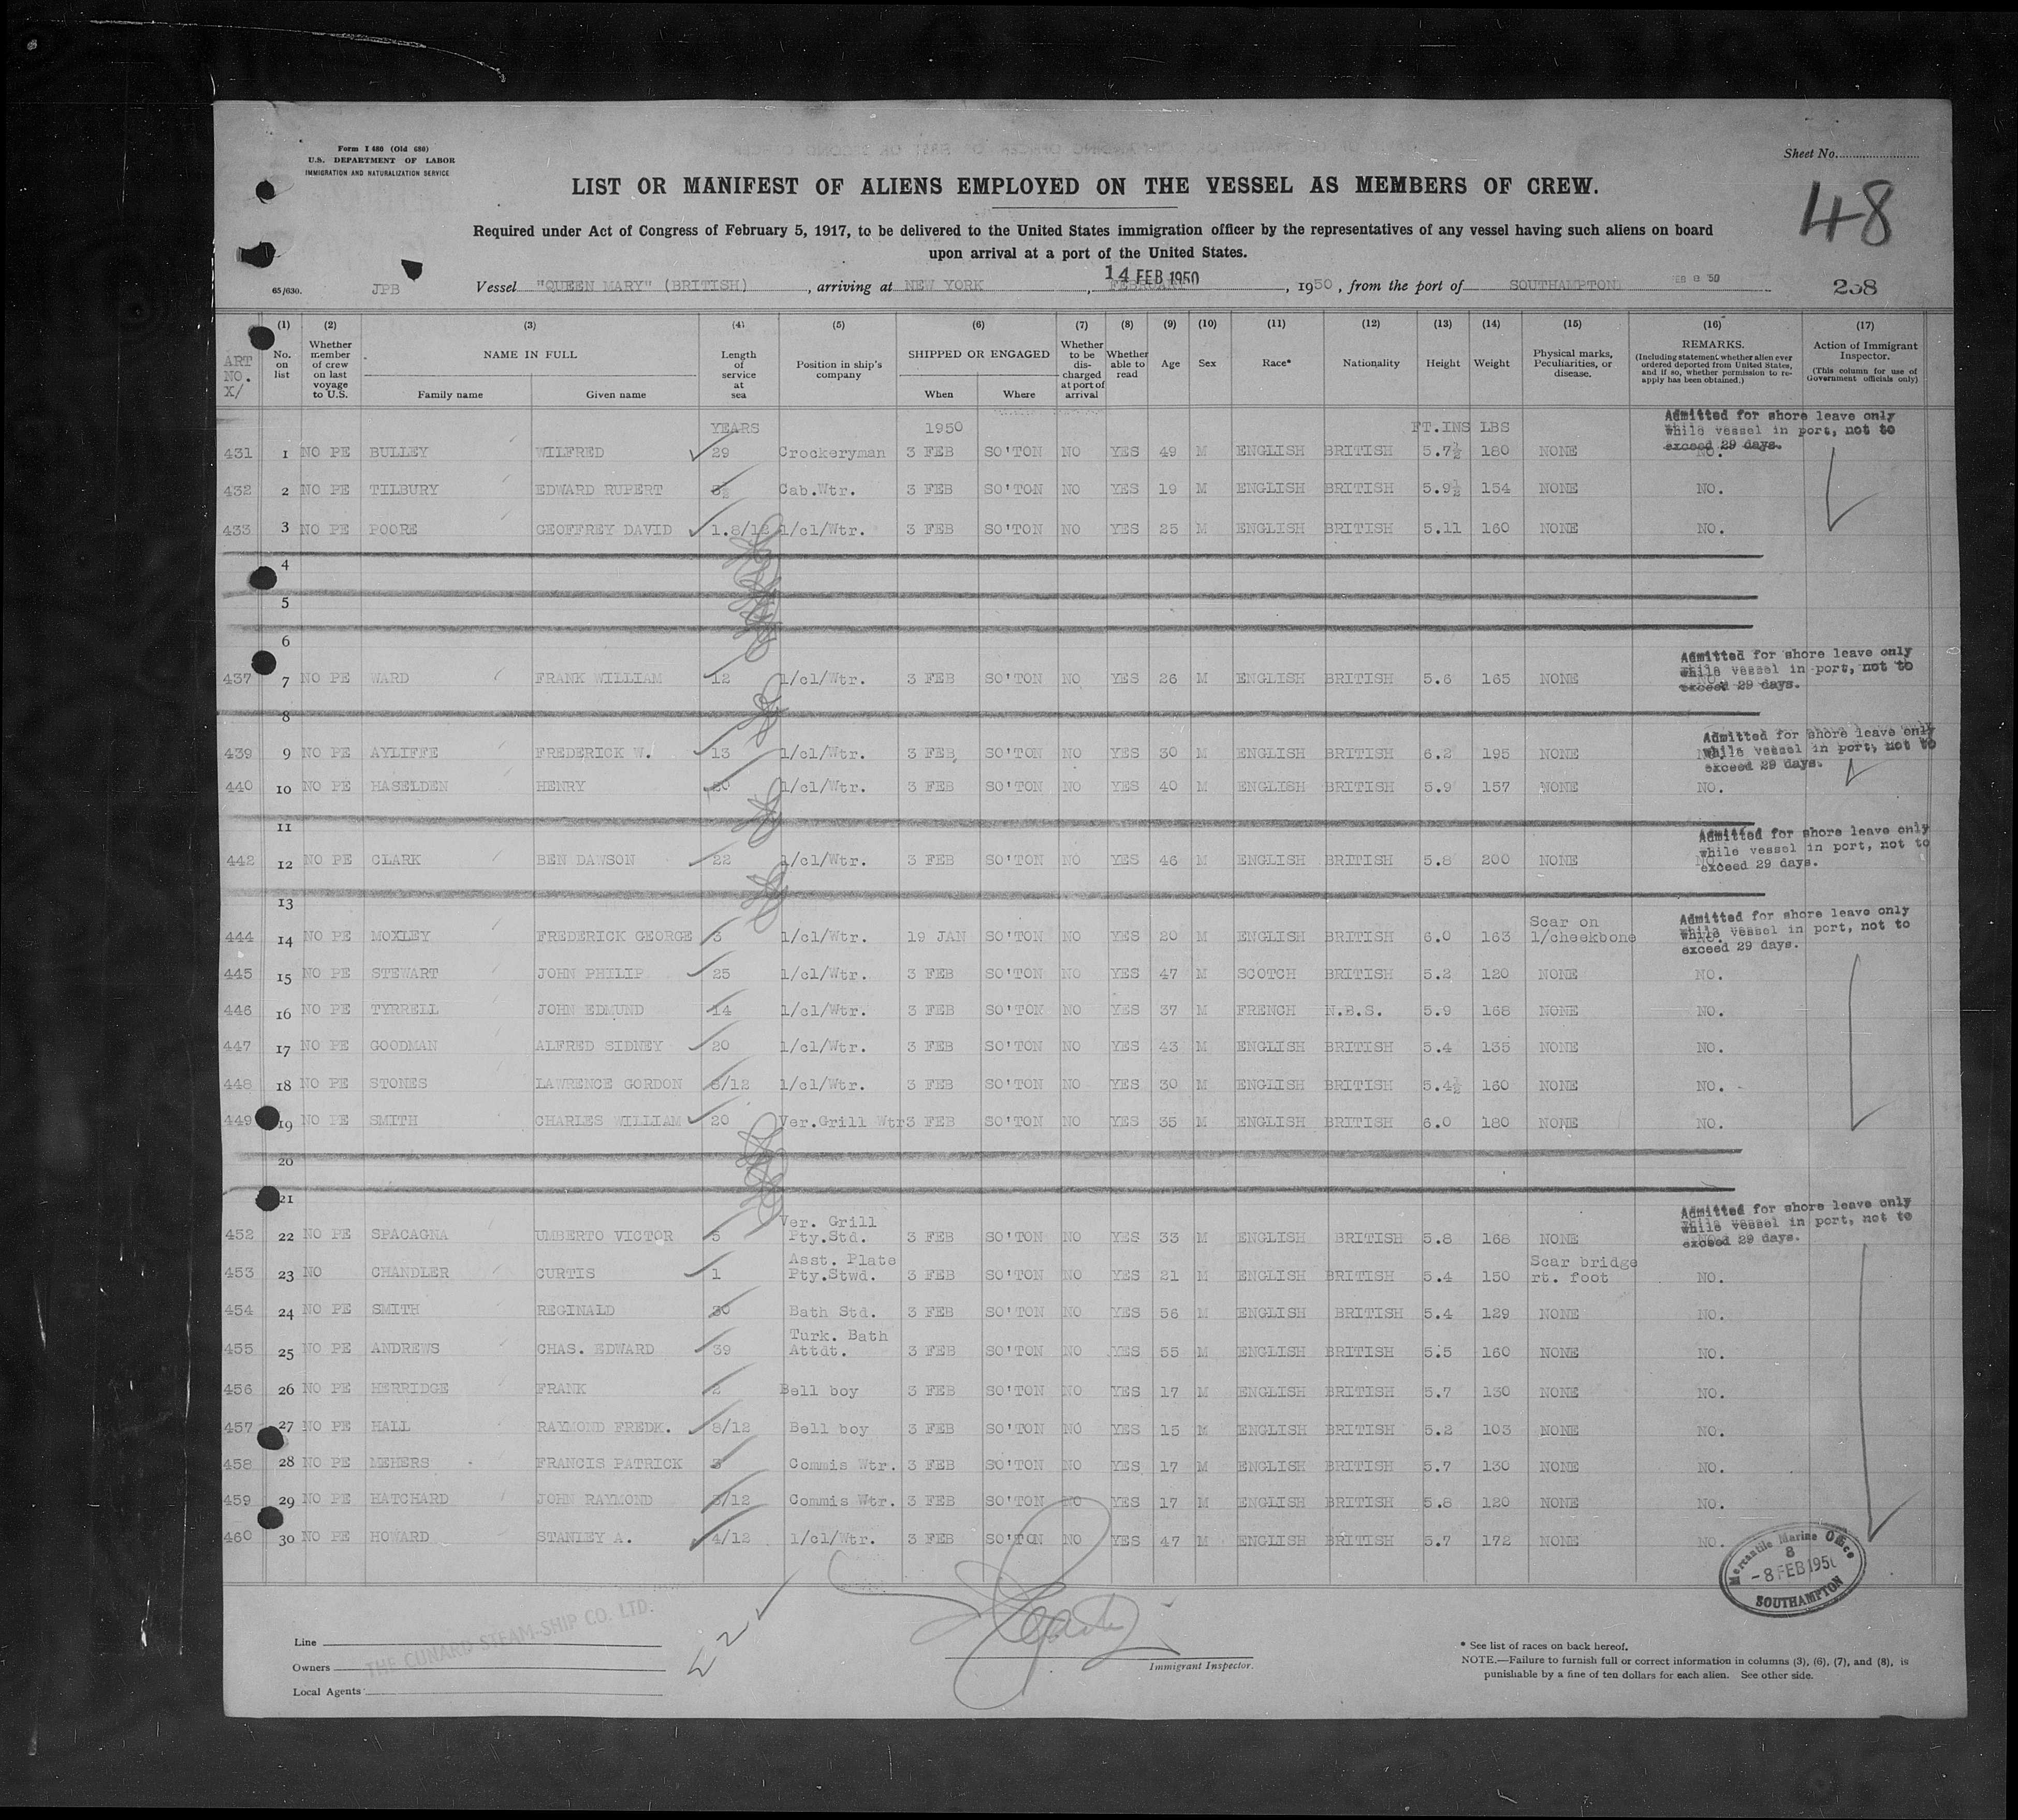 Form I 480 (Old 680)
U.S. DEPARTMENT OF LABOR
IMMIGRATION AND NATURALIZATION SERVICE
Sheet No.
LIST OR MANIFEST OF ALIENS EMPLOYED ON THE VESSEL AS MEMBERS OF CREW.
48
Required under Act of Congress of February 5, 1917, to be delivered to the United States immigration officer by the representatives of any vessel having such aliens on board
upon arrival at a port of the United States.
14 FEB 1950
65/630. JPB Vessel "QUEEN MARY" (BRITISH), arriving at NEW YORK, FEBRUARY, 1950, from the port of SOUTHAMPTON 238
(1) (2) (3) (4) (5) (6) (7) (8) (9) (10) (11) (12) (13) (14) (15) (16) (17)
ART NO. X/ No. on list Whether member of crew on last voyage to U.S. NAME IN FULL Family name Given name Length of service at sea Position in ship's company SHIPPED OR ENGAGED When Where Whether to be discharged at port of arrival Whether able to read Age Sex Race* Nationality Height Weight Physical marks, Peculiarities, or disease. REMARKS. (Including statement whether alien ever ordered deported from United States, and if so, whether permission to reapply has been obtained.) Action of Immigrant Inspector. (This column for use of Government officials only)
YEARS 1950 FT.INS LBS
Admitted for shore leave only
while vessel in port, not to
exceed 29 days.
431 1 NO PE BULLEY WILFRED 29 Crockeryman 3 FEB SO'TON NO YES 49 M ENGLISH BRITISH 5.7½ 180 NONE NO.
432 2 NO PE TILBURY EDWARD RUPERT Cab.Wtr. 3 FEB SO'TON NO YES 19 M ENGLISH BRITISH 5.9½ 154 NONE NO.
433 3 NO PE POORE GEOFFREY DAVID 1.8/12 1/cl/Wtr. 3 FEB SO'TON NO YES 25 M ENGLISH BRITISH 5.11 160 NONE NO.
4
5
6
Admitted for shore leave only
while vessel in port, not to
exceed 29 days.
437 7 NO PE WARD FRANK WILLIAM 12 1/cl/Wtr. 3 FEB SO'TON NO YES 26 M ENGLISH BRITISH 5.6 165 NONE NO.
8
Admitted for shore leave only
while vessel in port, not to
exceed 29 days.
439 9 NO PE AYLIFFE FREDERICK W. 13 1/cl/Wtr. 3 FEB SO'TON NO YES 30 M ENGLISH BRITISH 6.2 195 NONE
440 10 NO PE HASELDEN HENRY 20 1/cl/Wtr. 3 FEB SO'TON NO YES 40 M ENGLISH BRITISH 5.9 157 NONE NO.
11
Admitted for shore leave only
while vessel in port, not to
exceed 29 days.
442 12 NO PE CLARK BEN DAWSON 22 1/cl/Wtr. 3 FEB SO'TON NO YES 46 M ENGLISH BRITISH 5.8 200 NONE NO.
13
Admitted for shore leave only
while vessel in port, not to
exceed 29 days.
444 14 NO PE MOXLEY FREDERICK GEORGE 3 1/cl/Wtr. 19 JAN SO'TON NO YES 20 M ENGLISH BRITISH 6.0 163 Scar on 1/cheekbone NO.
445 15 NO PE STEWART JOHN PHILIP 25 1/cl/Wtr. 3 FEB SO'TON NO YES 47 M SCOTCH BRITISH 5.2 120 NONE NO.
446 16 NO PE TYRRELL JOHN EDMUND 14 1/cl/Wtr. 3 FEB SO'TON NO YES 37 M FRENCH N.B.S. 5.9 168 NONE NO.
447 17 NO PE GOODMAN ALFRED SIDNEY 20 1/cl/Wtr. 3 FEB SO'TON NO YES 43 M ENGLISH BRITISH 5.4 135 NONE NO.
448 18 NO PE STONES LAWRENCE GORDON 8/12 1/cl/Wtr. 3 FEB SO'TON NO YES 30 M ENGLISH BRITISH 5.4½ 160 NONE NO.
449 19 NO PE SMITH CHARLES WILLIAM 20 Ver.Grill Wtr 3 FEB SO'TON NO YES 35 M ENGLISH BRITISH 6.0 180 NONE NO.
20
21
Admitted for shore leave only
while vessel in port, not to
exceed 29 days.
452 22 NO PE SPACAGNA UMBERTO VICTOR 5 Ver. Grill Pty.Std. 3 FEB SO'TON NO YES 33 M ENGLISH BRITISH 5.8 168 NONE NO.
453 23 NO CHANDLER CURTIS 1 Asst. Plate Pty.Stwd. 3 FEB SO'TON NO YES 21 M ENGLISH BRITISH 5.4 150 Scar bridge rt. foot NO.
454 24 NO PE SMITH REGINALD 30 Bath Std. 3 FEB SO'TON NO YES 56 M ENGLISH BRITISH 5.4 129 NONE NO.
455 25 NO PE ANDREWS CHAS. EDWARD 39 Turk. Bath Attdt. 3 FEB SO'TON NO YES 55 M ENGLISH BRITISH 5.5 160 NONE NO.
456 26 NO PE HERRIDGE FRANK 2 Bell boy 3 FEB SO'TON NO YES 17 M ENGLISH BRITISH 5.7 130 NONE NO.
457 27 NO PE HALL RAYMOND FREDK. 8/12 Bell boy 3 FEB SO'TON NO YES 15 M ENGLISH BRITISH 5.2 103 NONE NO.
458 28 NO PE MEHERS FRANCIS PATRICK 3 Commis Wtr. 3 FEB SO'TON NO YES 17 M ENGLISH BRITISH 5.7 130 NONE NO.
459 29 NO PE HATCHARD JOHN RAYMOND 3/12 Commis Wtr. 3 FEB SO'TON NO YES 17 M ENGLISH BRITISH 5.8 120 NONE NO.
460 30 NO PE HOWARD STANLEY A. 4/12 1/cl/Wtr. 3 FEB SO'TON NO YES 47 M ENGLISH BRITISH 5.7 172 NONE NO.
Mercantile Marine Office
8
-8 FEB 1950
SOUTHAMPTON
THE CUNARD STEAM-SHIP CO. LTD.
Line
Owners
Local Agents
Immigrant Inspector.
* See list of races on back hereof.
NOTE.—Failure to furnish full or correct information in columns (3), (6), (7), and (8), is
punishable by a fine of ten dollars for each alien. See other side.